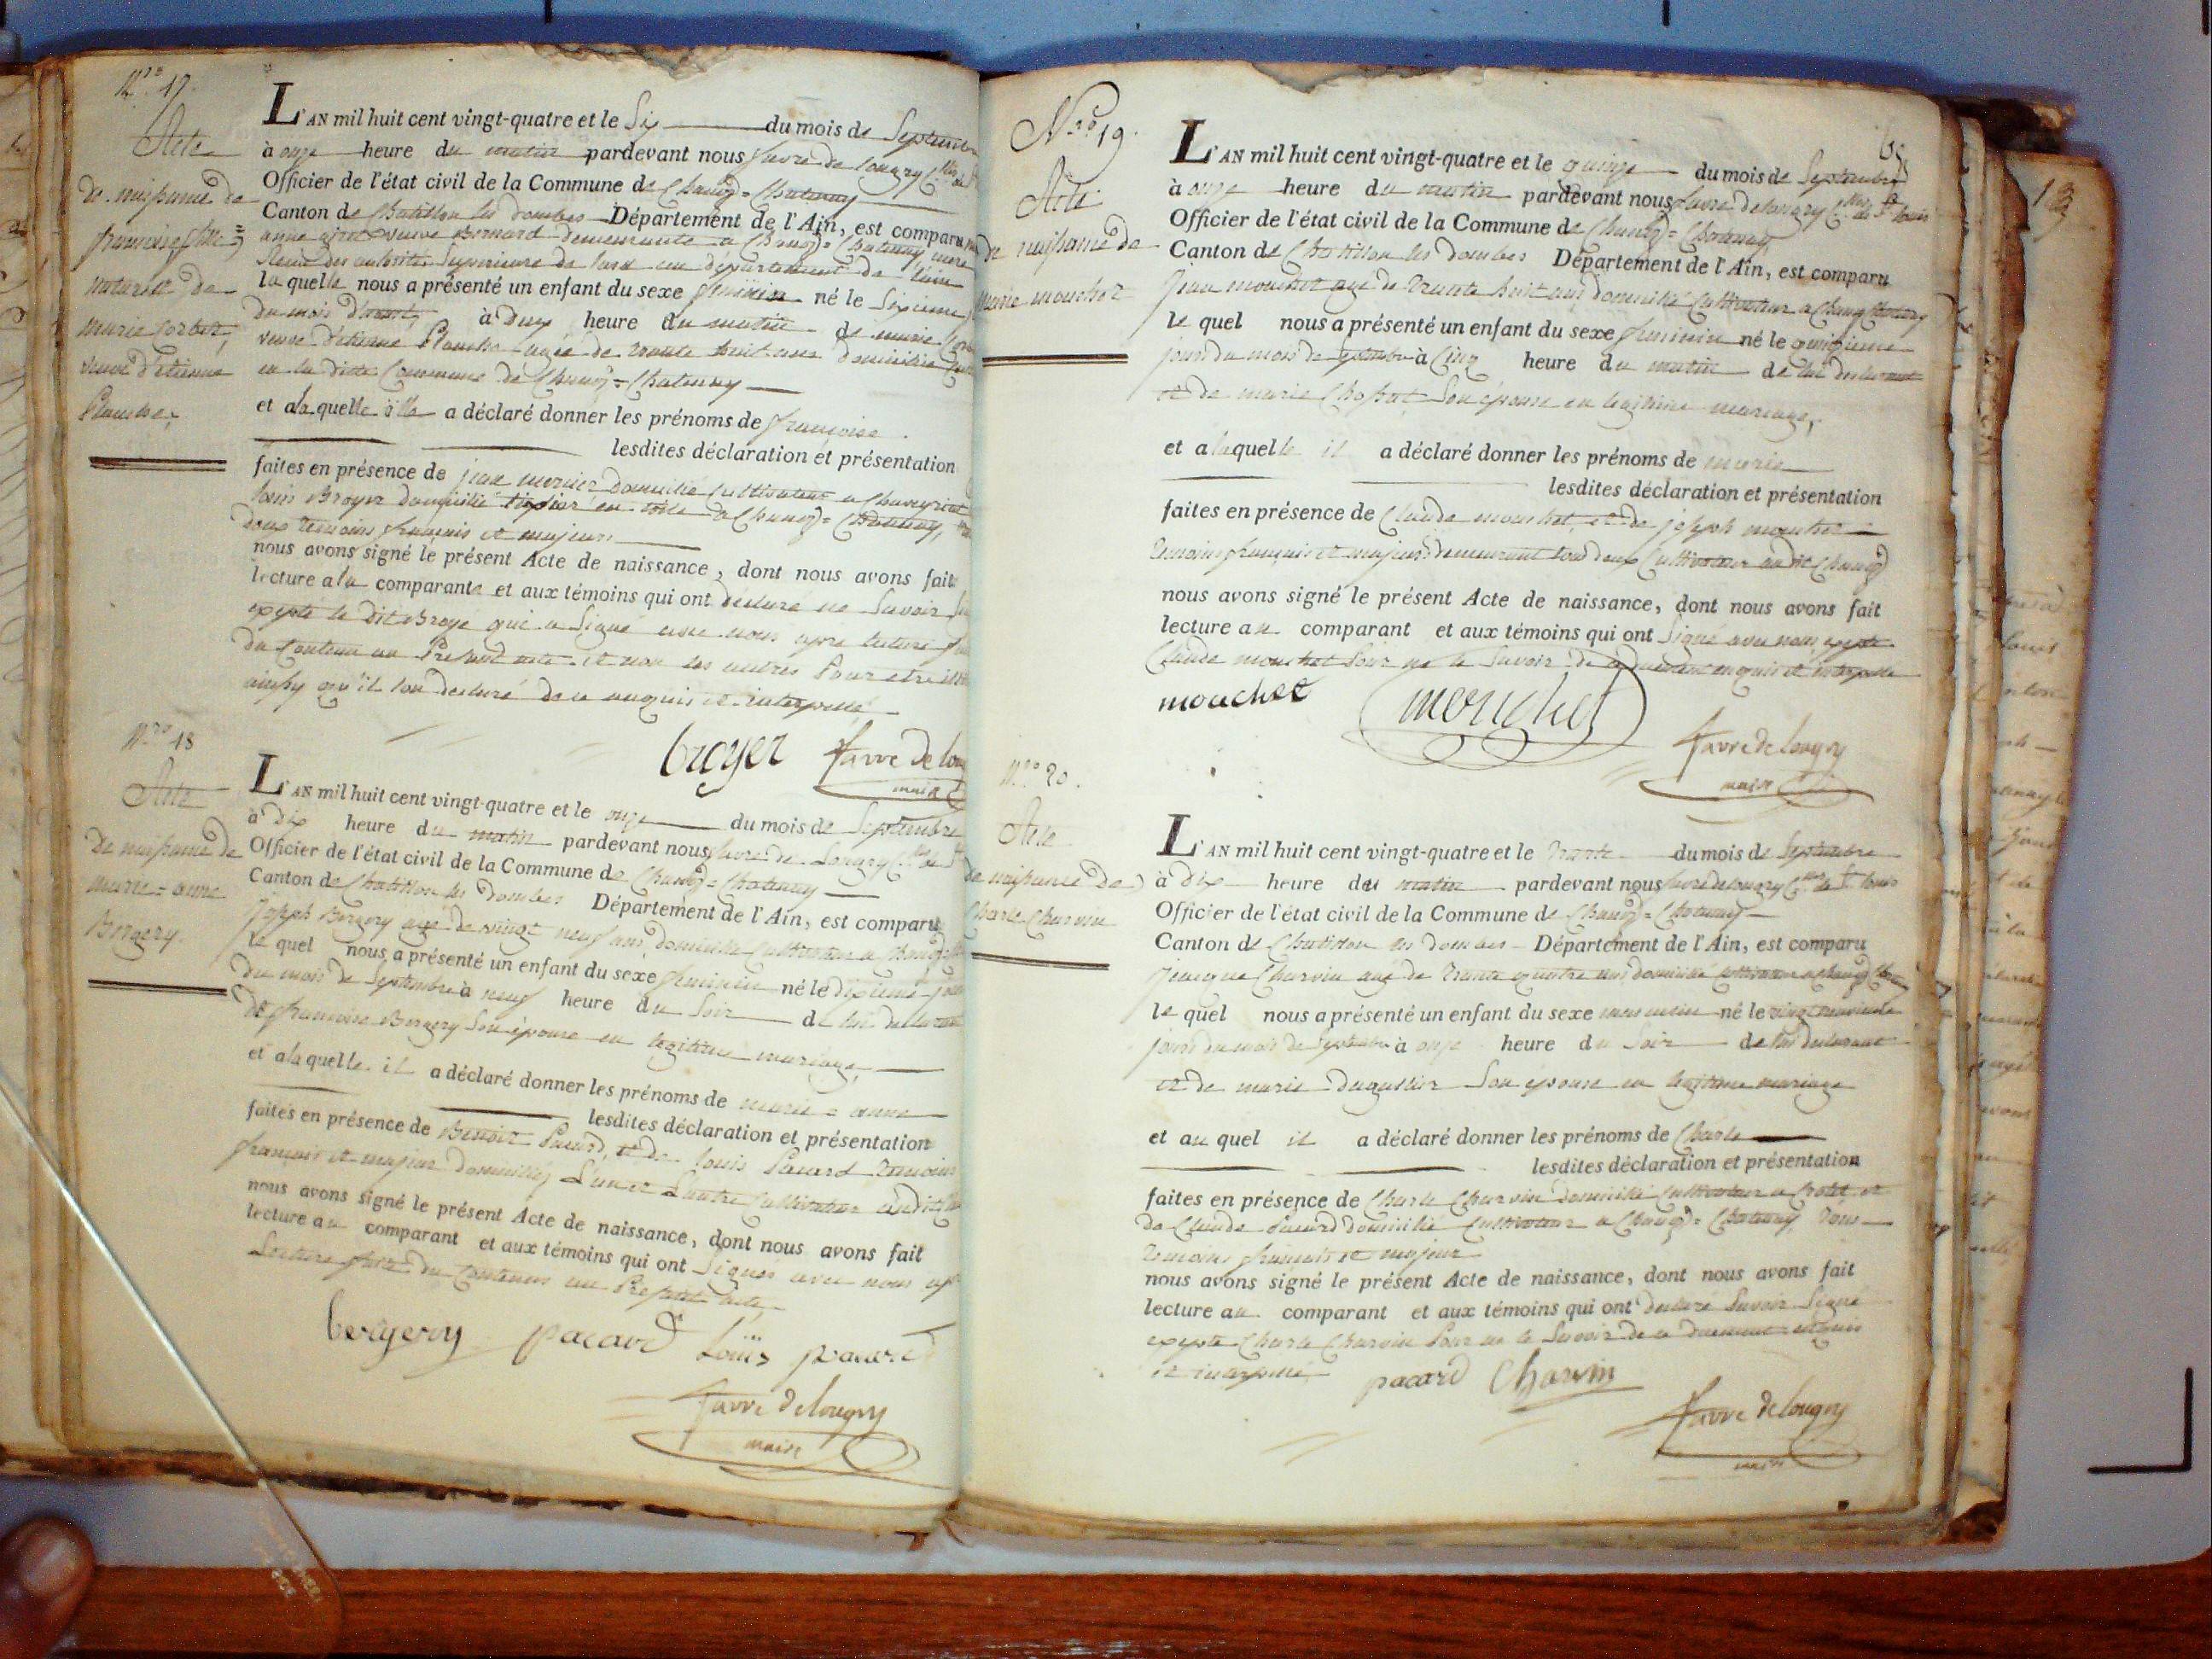 N.ro 17.
Acte
de naissance de
françoise fille
naturelle de
marie corbet,
veuve d'etienne
Planche,
L'AN mil huit cent vingt-quatre et le Six du mois de Septembre
à onze heure du matin pardevant nous favre de longry
Officier de l'état civil de la Commune de Chanoz-Chatenay
Canton de Chatillon les dombes Département de l'Ain, est comparu
anne veuve Bernard demeurante a Chanoz-Chatenay
département de l'ain
laquelle nous a présenté un enfant du sexe feminin né le Sixieme
du mois à deux heure du matin de marie
veuve d'etienne Planche agée de trente huit ans domiciliée
en la ditte Commune de Chanoz-Chatenay
et a laquelle elle a déclaré donner les prénoms de françoise.
lesdites déclaration et présentation
faites en présence de jean mercier domicilié cultivateur a Chaveyriat
louis Broyer domicilié en toile a Chanoz-Chatenay,
deux temoins français et majeurs
nous avons signé le présent Acte de naissance, dont nous avons fait
lecture a la comparante et aux témoins qui ont declaré ne Savoir
excepte le dit Broye qui a Signé avec nous apre lecture
du Contenu au Present acte et non les autres Pour etre
ainsy qu'il l'on declaré de ce enquis et interpellé
broyer favre de
maire
N.ro 18
Acte
De naissance de
marie-anne
Bergery.
L'AN mil huit cent vingt-quatre et le onze du mois de Septembre
à dix heure du matin pardevant nous favre de Longry
Officier de l'état civil de la Commune de Chanoz-Chatenay
Canton de Chatillon les dombes Département de l'Ain, est comparu
joseph Bergery agé de vingt neuf ans domicilié cultivateur a
le quel nous a présenté un enfant du sexe feminin né le dixieme
du mois de Septembre à neuf heure du Soir de lui declarant
de françoise Bergery Son épouse en legitime mariage,
et a laquelle il a déclaré donner les prénoms de marie-anne
lesdites déclaration et présentation
faites en présence de Benoit Pacard, et de louis Pacard temoins
français et majeur domiciliés L'un et L'autre Cultivateur
nous avons signé le présent Acte de naissance, dont nous avons fait
lecture au comparant et aux témoins qui ont Signés avec nous
Lecture faite du Contenus au Present acte
bergery pacard Louis pacard
favre de longry
maire
N.ro 19.
Acte
de naissance de
marie mouchet
L'AN mil huit cent vingt-quatre et le quinze du mois de Septembre
à onze heure du matin pardevant nous favre delongry
Officier de l'état civil de la Commune de Chanoz-Chatenay
Canton de Chatillon les dombes Département de l'Ain, est comparu
jean mouchet agé de trente huit ans domicilié Cultivateur a Chanoz Chatenay
le quel nous a présenté un enfant du sexe feminin né le quinzieme
jour du mois de septembre à Cinq heure du matin de lui declarant
et de marie Son épouse en legitime mariage,
et a laquelle il a déclaré donner les prénoms de marie
lesdites déclaration et présentation
faites en présence de Claude mouchet, et de joseph mouchet
temoins français et majeurs demeurant tous deux Cultivateur au dit Chanoz
nous avons signé le présent Acte de naissance, dont nous avons fait
lecture au comparant et aux témoins qui ont Signé avec nous, excepte
Claude mouchet Pour ne le Savoir de ce enquis et interpelle
mouchet mouchet
favre de longry
maire
N.ro 20.
Acte
de naissance de
Charle Charvin
L'AN mil huit cent vingt-quatre et le trente du mois de Septembre
à dix heure du matin pardevant nous favre delongry
Officier de l'état civil de la Commune de Chanoz-Chatenay
Canton de Chatillon les dombes Département de l'Ain, est comparu
Charvin agé de trente quatre ans domicilié cultivateur a Chanoz
le quel nous a présenté un enfant du sexe masculin né le vingt neuvieme
jour du mois de Septembre à onze heure du Soir de lui declarant
et de marie Son epouse en legitime mariage
et au quel il a déclaré donner les prénoms de Charle
lesdites déclaration et présentation
faites en présence de Charle Charvin domicilié Cultivateur a et
de Claude Pacard domicilié cultivateur a Chanoz-Chatenay, tous
temoins français et majeur
nous avons signé le présent Acte de naissance, dont nous avons fait
lecture au comparant et aux témoins qui ont declaré Savoir Signé
excepte Charle Charvin Pour ne le Savoir de ce enquis
et interpellé
pacard Charvin
favre de longry
maire